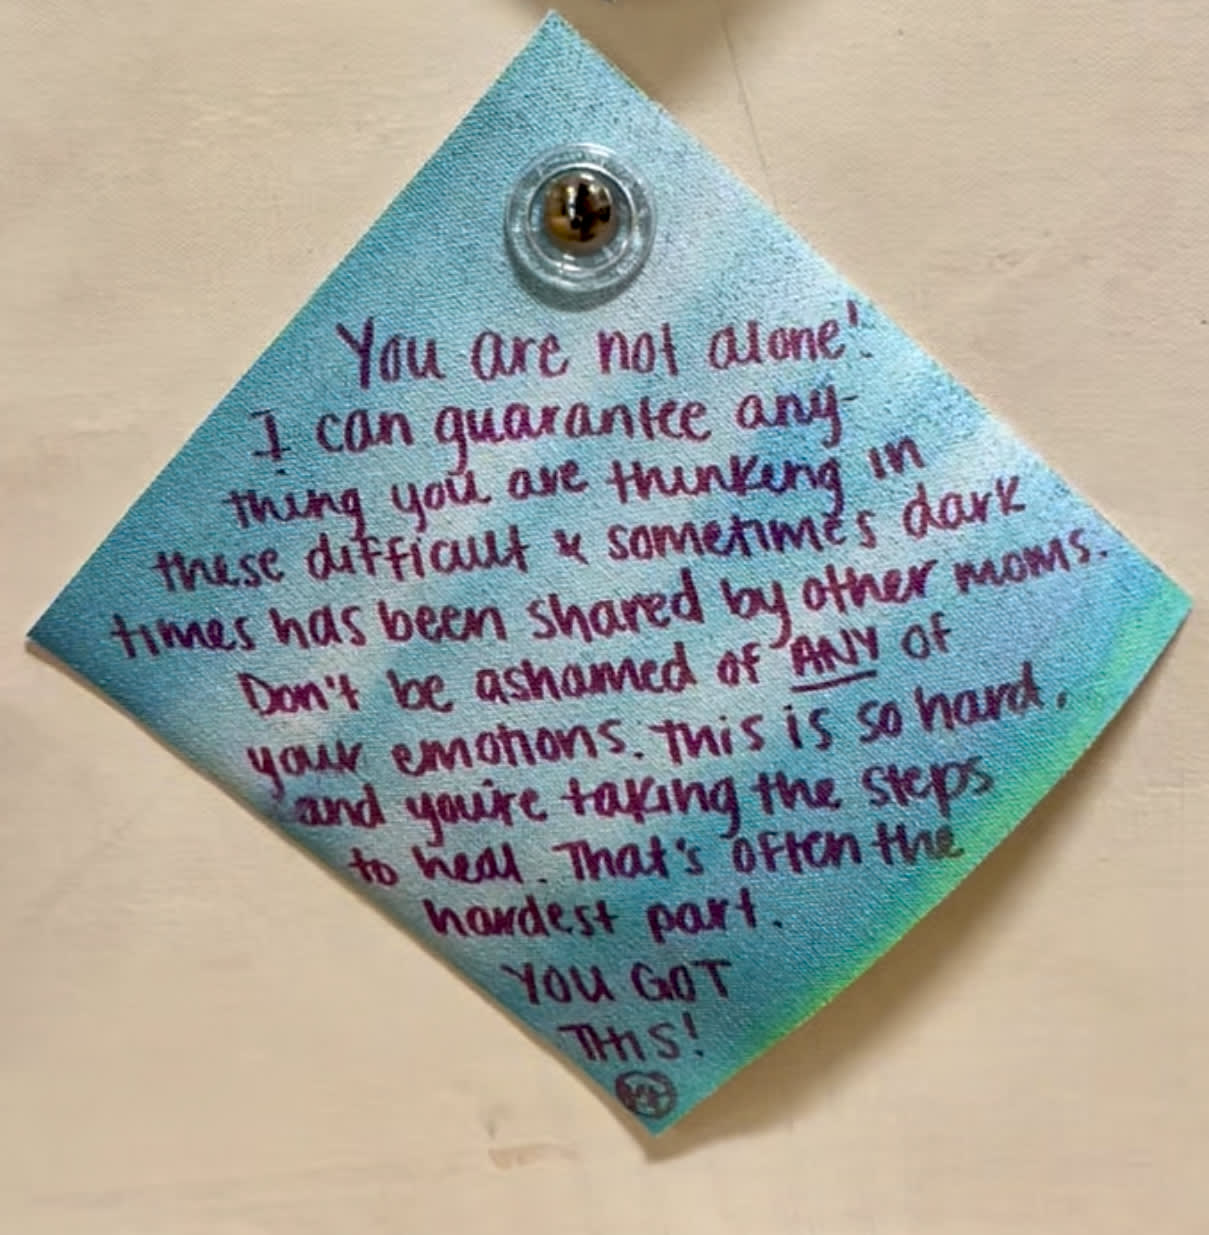 You are not alone!
I can guarantee any-
thing you are thinking in
these difficult & sometimes dark
times has been shared by other moms.
Don't be ashamed of ANY of
your emotions. This is so hard,
and you're taking the steps
to heal. That's often the
hardest part.
YOU GOT
THIS!